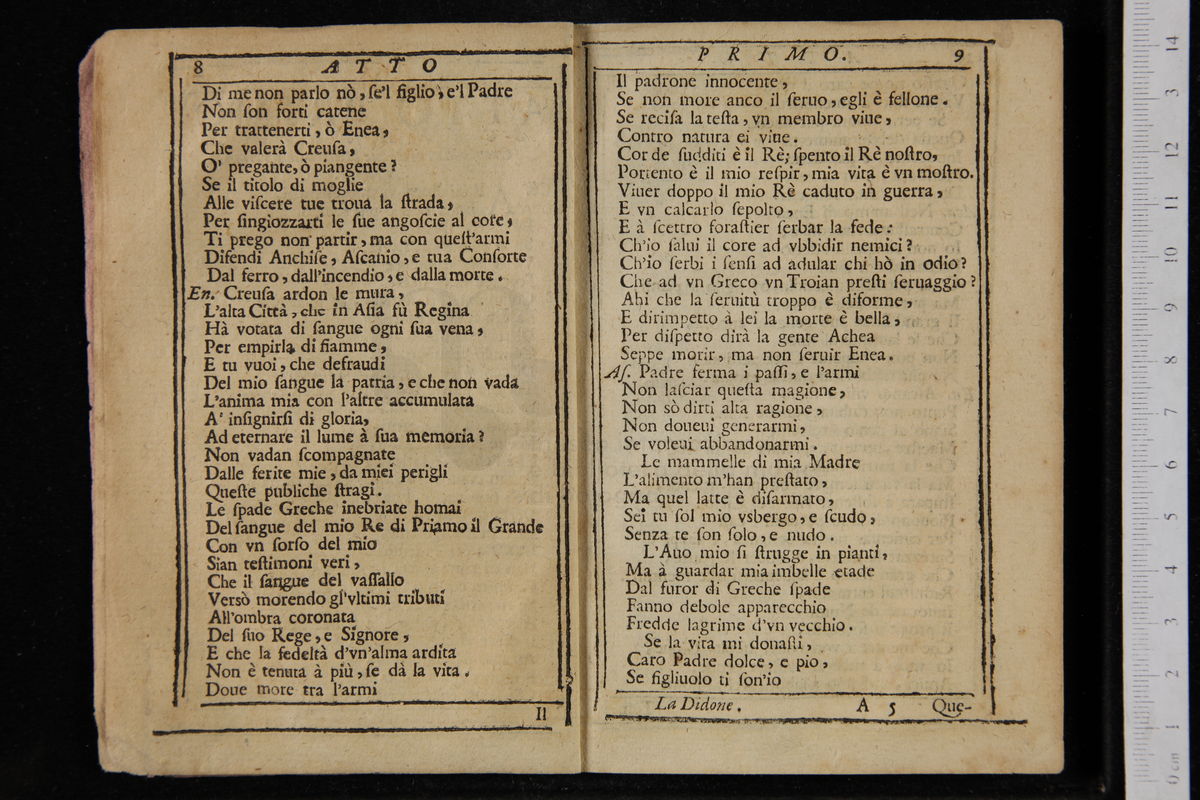 8 ATTO
Di me non parlo nò, ſe'l figlio, e'l Padre
Non ſon forti catene
Per trattenerti, ò Enea,
Che valerà Creuſa,
O' pregante, ò piangente?
Se il titolo di moglie
Alle viſcere tue troua la ſtrada,
Per ſingiozzarti le ſue angoſcie al core,
Ti prego non partir, ma con queſt'armi
Difendi Anchiſe, Aſcanio, e tua Conſorte
Dal ferro, dall'incendio, e dalla morte.
En. Creuſa ardon le mura,
L'alta Città, che in Aſia fù Regina
Hà votata di ſangue ogni ſua vena,
Per empirla di fiamme,
E tu vuoi, che defraudi
Del mio ſangue la patria, e che non vada
L'anima mia con l'altre accumulata
A' inſignirſi di gloria,
Ad eternare il lume à ſua memoria?
Non vadan ſcompagnate
Dalle ferite mie, da miei perigli
Queſte publiche ſtragi.
Le ſpade Greche inebriate homai
Del ſangue del mio Re di Priamo il Grande
Con vn ſorſo del mio
Sian teſtimoni veri,
Che il ſangue del vaſſallo
Versò morendo gl'vltimi tributi
All'ombra coronata
Del ſuo Rege, e Signore,
E che la fedeltà d'vn'alma ardita
Non è tenuta à più, ſe dà la vita.
Doue more tra l'armi
Il
PRIMO. 9
Il padrone innocente,
Se non more anco il ſeruo, egli è fellone.
Se reciſa la teſta, vn membro viue,
Contro natura ei viue.
Cor de ſudditi è il Rè; ſpento il Rè noſtro,
Portento è il mio reſpir, mia vita è vn moſtro.
Viuer doppo il mio Rè caduto in guerra,
E vn calcarlo ſepolto,
E à ſcettro foraſtier ſerbar la fede:
Ch'io ſalui il core ad vbbidir nemici?
Ch'io ſerbi i ſenſi ad adular chi hò in odio?
Che ad vn Greco vn Troian preſti ſeruaggio?
Ahi che la ſeruitù troppo è diforme,
E dirimpetto à lei la morte è bella,
Per diſpetto dirà la gente Achea
Seppe morir, ma non ſeruir Enea.
Aſ. Padre ferma i paſſi, e l'armi
Non laſciar queſta magione,
Non sò dirti alta ragione,
Non doueui generarmi,
Se voleui abbandonarmi.
Le mammelle di mia Madre
L'alimento m'han preſtato,
Ma quel latte è diſarmato,
Sei tu ſol mio vsbergo, e ſcudo,
Senza te ſon ſolo, e nudo.
L'Auo mio ſi ſtrugge in pianti,
Ma à guardar mia imbelle etade
Dal furor di Greche ſpade
Fanno debole apparecchio
Fredde lagrime d'vn vecchio.
Se la vita mi donaſti,
Caro Padre dolce, e pio,
Se figliuolo ti ſon'io
La Didone. A 5 Que-
0 cm 1 2 3 4 5 6 7 8 9 10 11 12 13 14